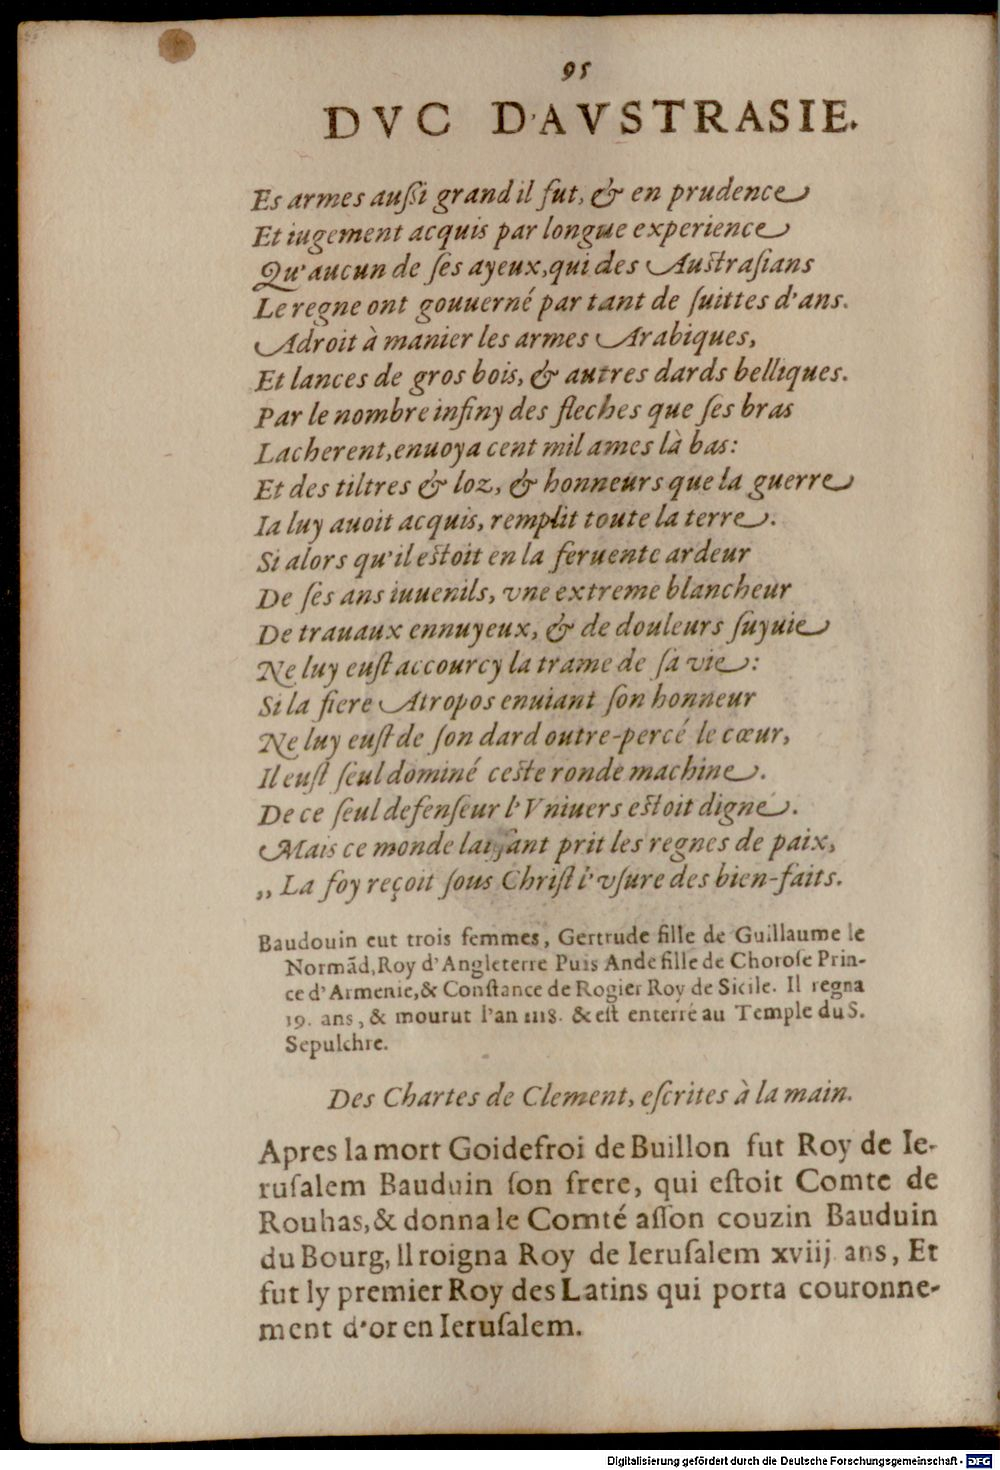 95
DVC D'AVSTRASIE.
Es armes auſſi grand il fut, & en prudence
Et iugement acquis par longue experience
Qu'aucun de ſes ayeux, qui des Auſtraſians
Le regne ont gouuerné par tant de ſuittes d'ans.
Adroit à manier les armes Arabiques,
Et lances de gros bois, & autres dards belliques.
Par le nombre infiny des fleches que ſes bras
Lacherent, enuoya cent mil ames là bas:
Et des tiltres & loz, & honneurs que la guerre
Ia luy auoit acquis, remplit toute la terre.
Si alors qu'il eſtoit en la feruente ardeur
De ſes ans iuuenils, vne extreme blancheur
De trauaux ennuyeux, & de douleurs ſuyuie
Ne luy euſt accourcy la trame de ſa vie:
Si la fiere Atropos enuiant ſon honneur
Ne luy euſt de ſon dard outre-percé le cœur,
Il euſt ſeul dominé ceſte ronde machine.
De ce ſeul defenſeur l'Vniuers eſtoit digne.
Mais ce monde laiſſant prit les regnes de paix,
„ La foy reçoit ſous Chriſt l'vſure des bien-faits.
Baudouin eut trois femmes, Gertrude fille de Guillaume le
Normãd, Roy d'Angleterre Puis Ande fille de Choroſe Prin-
ce d'Armenie, & Conſtance de Rogier Roy de Sicile. Il regna
19. ans, & mourut l'an 1118. & eſt enterré au Temple du S.
Sepulchre.
Des Chartes de Clement, eſcrites à la main.
Apres la mort Goidefroi de Buillon fut Roy de Ie-
ruſalem Bauduin ſon frere, qui eſtoit Comte de
Rouhas, & donna le Comté aſſon couzin Bauduin
du Bourg, Il roigna Roy de Ieruſalem xviij ans, Et
fut ly premier Roy des Latins qui porta couronne-
ment d'or en Ieruſalem.
Digitalisierung gefördert durch die Deutsche Forschungsgemeinschaft - DFG